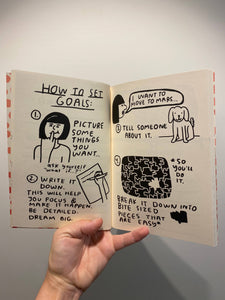 HOW TO SET
GOALS:
1.
PICTURE
SOME
THINGS
YOU
WANT.
ask yourself
"what if..?"
2. WRITE IT
DOWN.
THIS WILL HELP
YOU FOCUS &
MAKE IT HAPPEN.
BE DETAILED.
DREAM BIG.
I WANT TO
MOVE TO MARS...
3. TELL SOMEONE
ABOUT IT.
4.
*SO
YOU'LL
DO
IT.
BREAK IT DOWN INTO
BITE SIZED
PIECES THAT
ARE EASY*